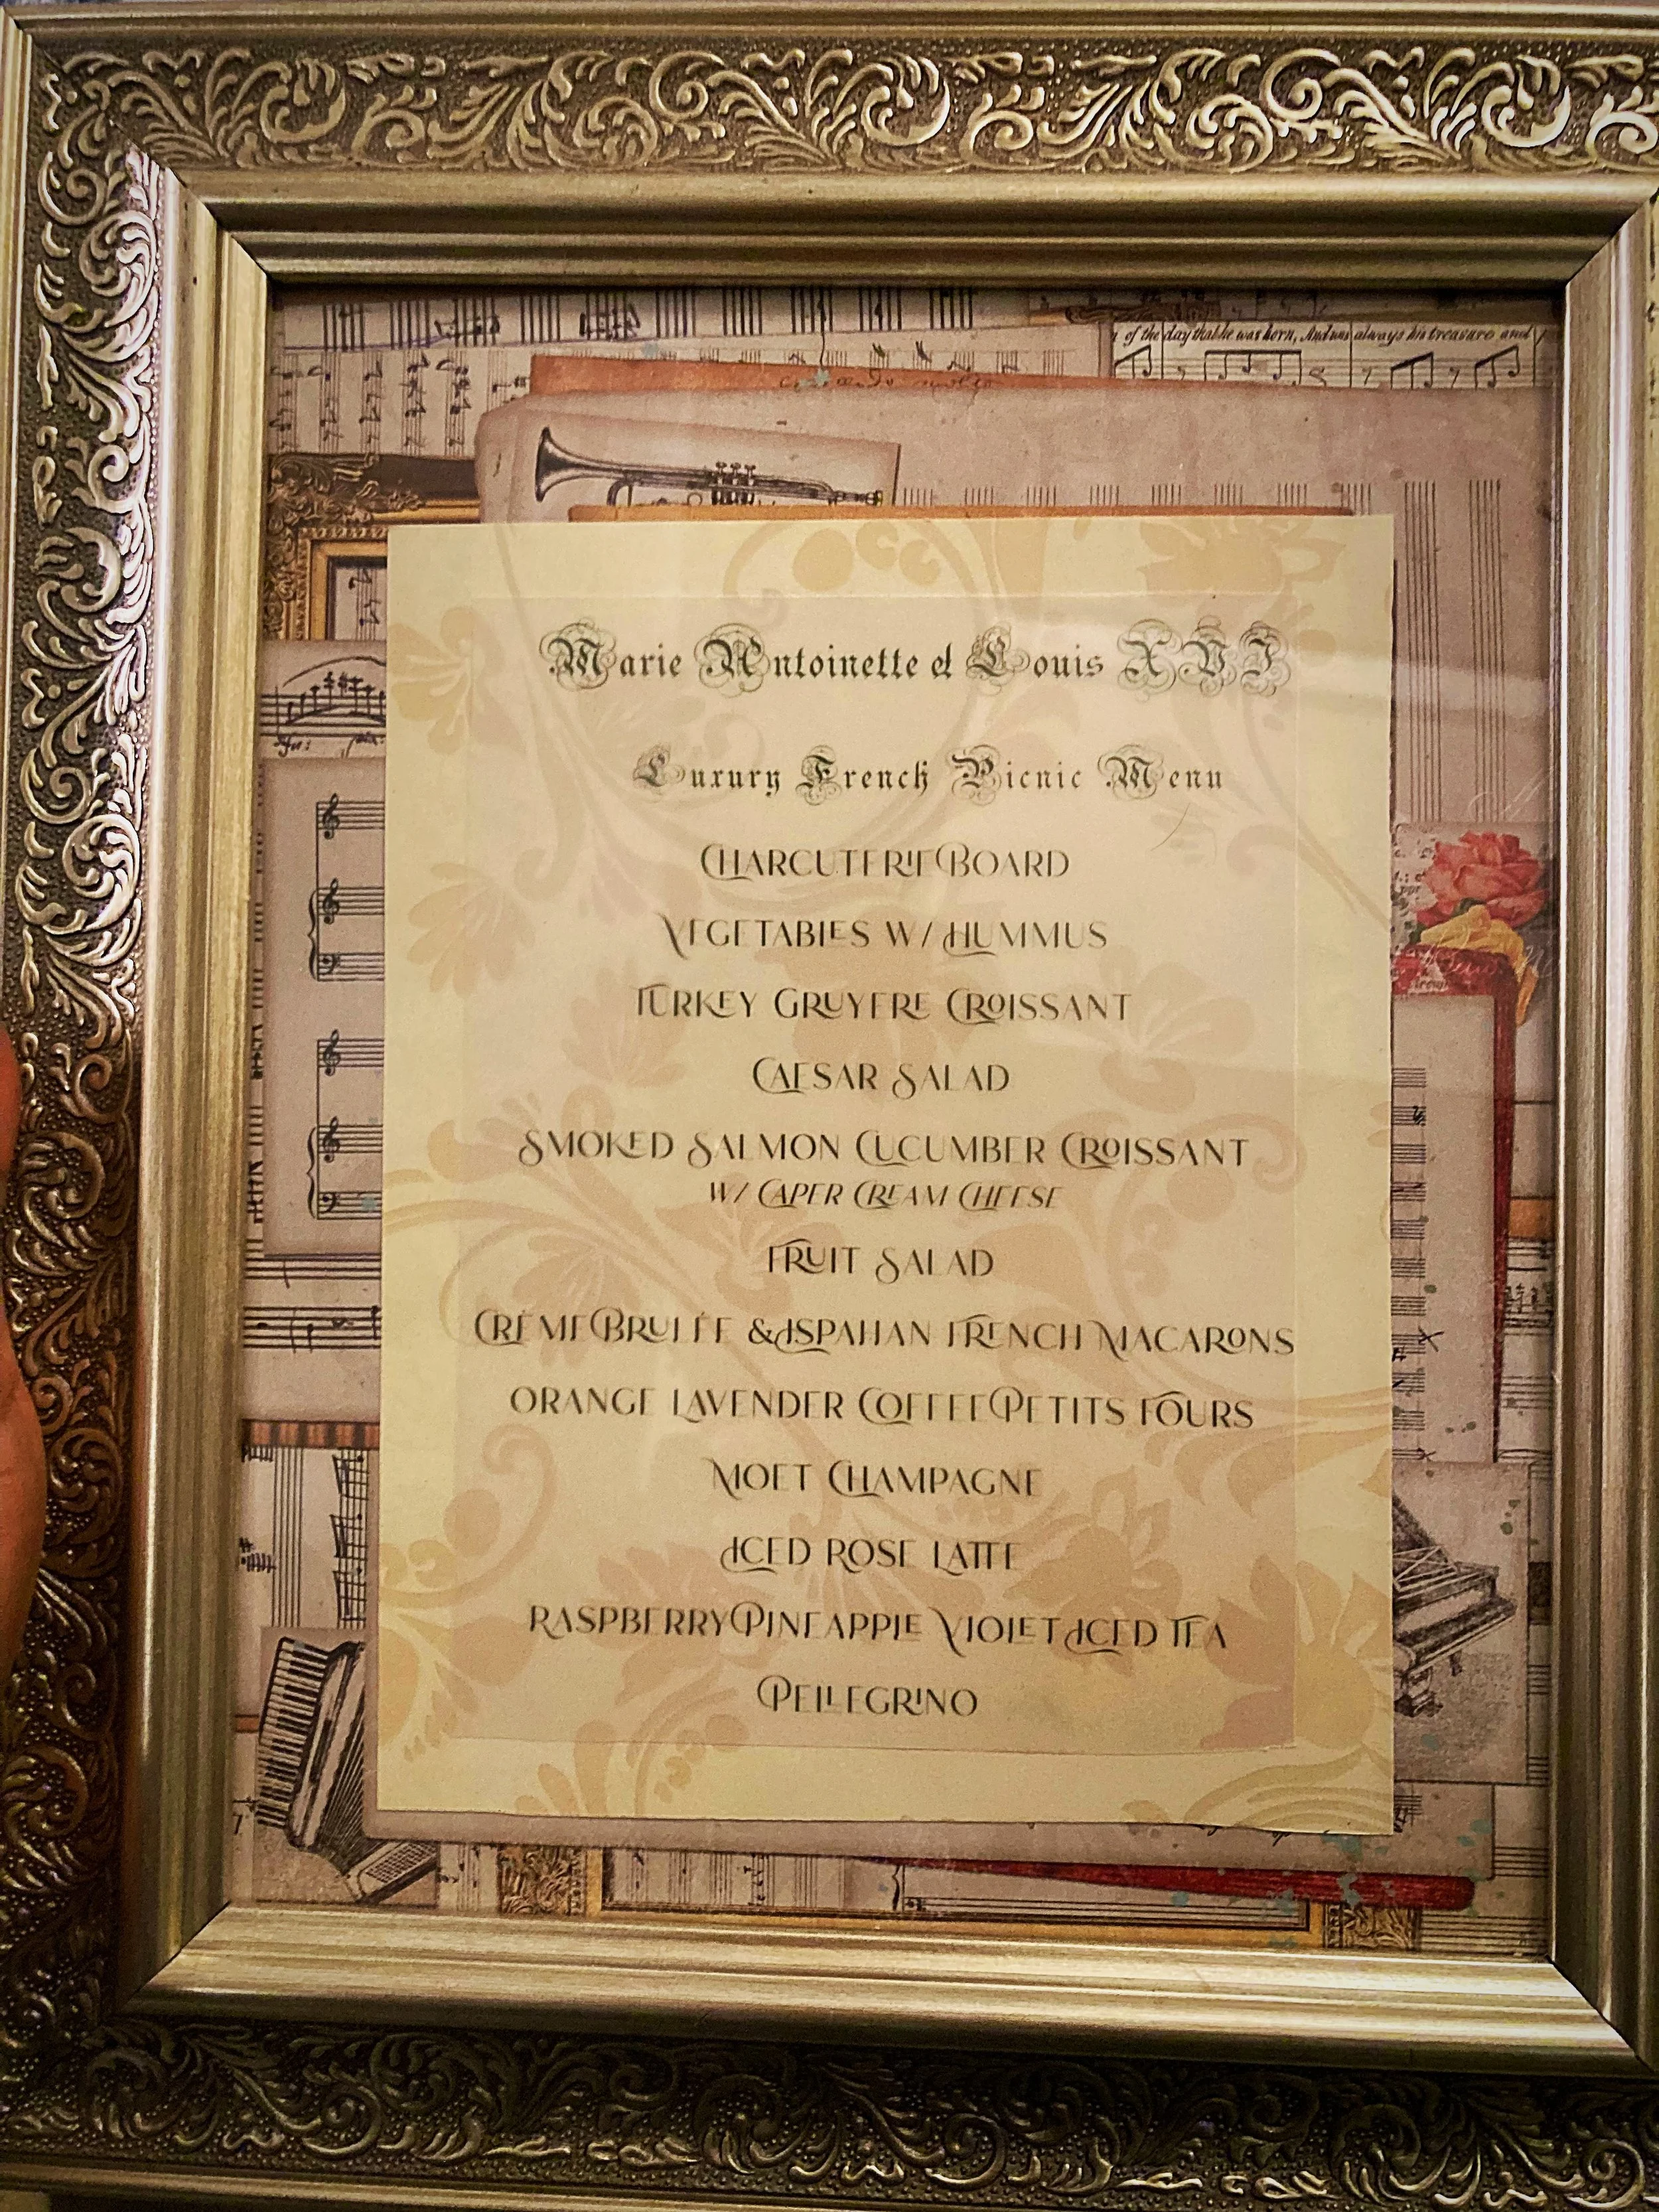 of the day that he was born, And was always his treasure and
Marie Antoinette et Louis XVI
Luxury French Picnic Menu
CHARCUTERIE BOARD
VEGETABLES W/ HUMMUS
TURKEY GRUYERE CROISSANT
CAESAR SALAD
SMOKED SALMON CUCUMBER CROISSANT
W/ CAPER CREAM CHEESE
FRUIT SALAD
CRÈME BRULÉE & ISPAHAN FRENCH MACARONS
ORANGE LAVENDER COFFEE PETITS FOURS
MOET CHAMPAGNE
ICED ROSE LATTE
RASPBERRY PINEAPPLE VIOLET ICED TEA
PELLEGRINO